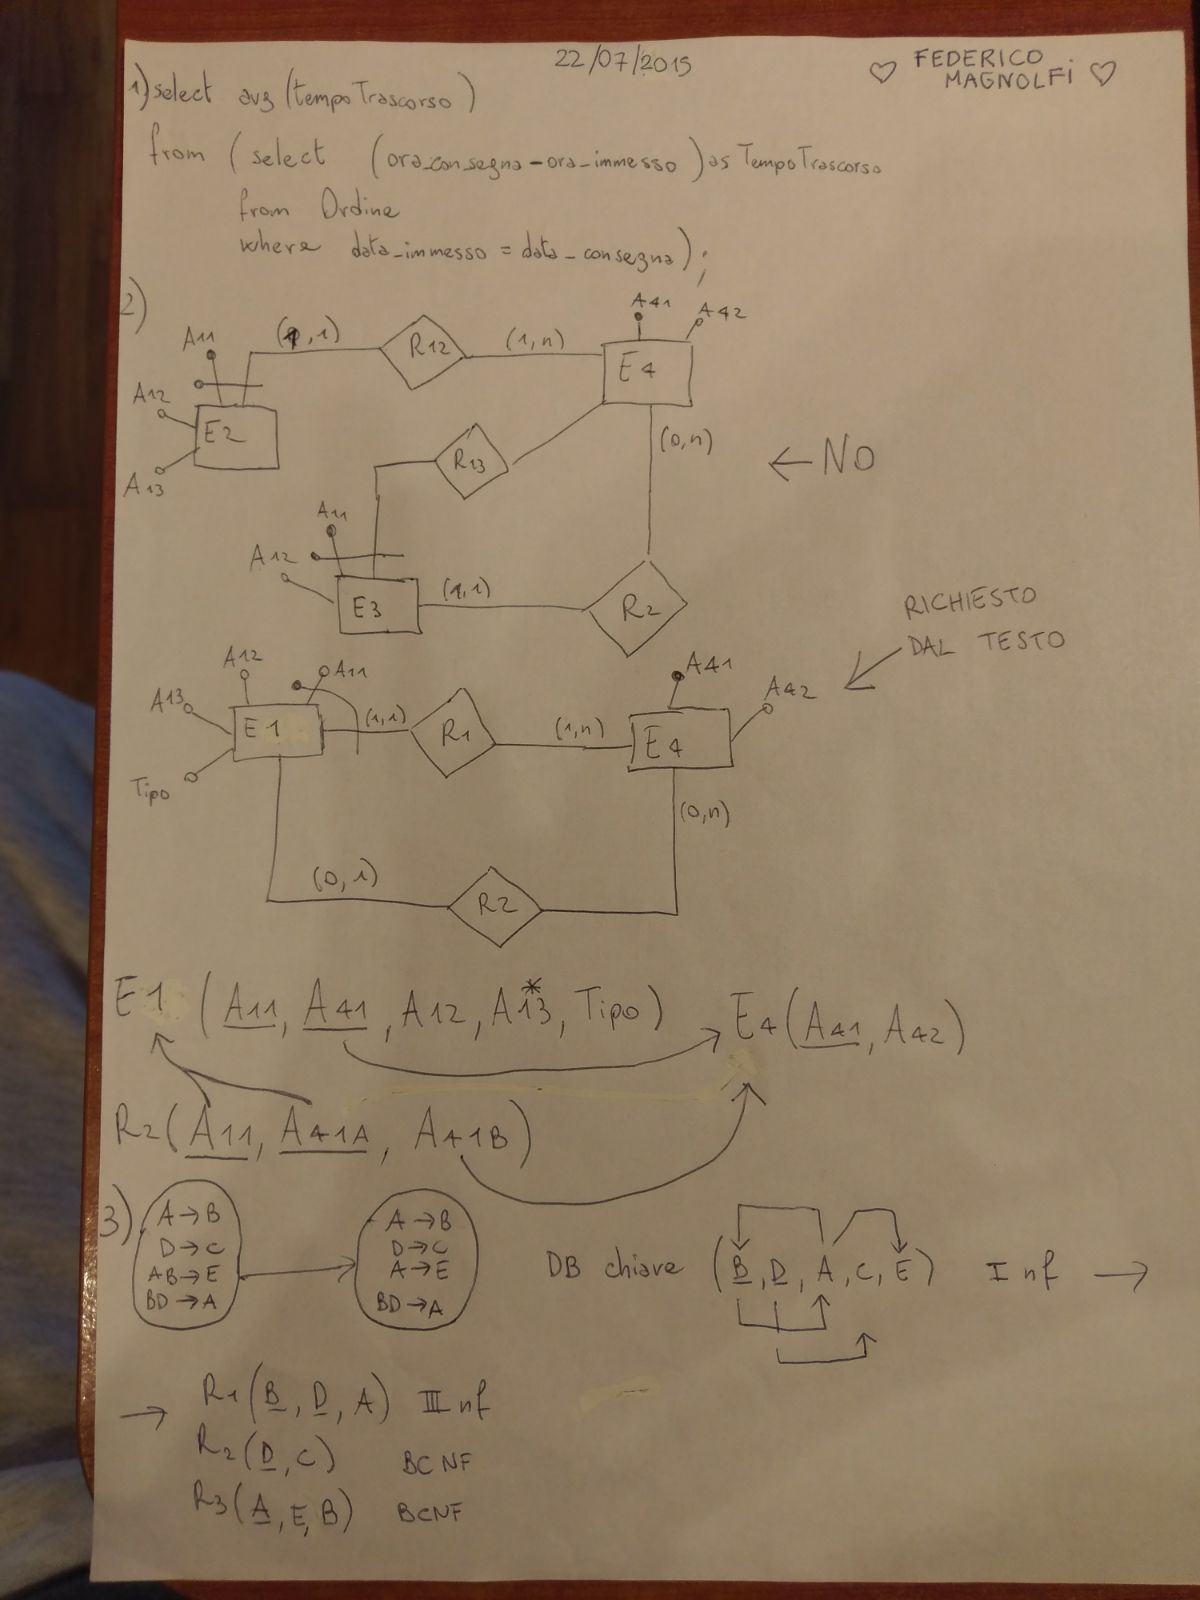 22/07/2015
♡ FEDERICO MAGNOLFI ♡
1) select avg (tempoTrascorso)
from (select (ora_consegna-ora_immesso) as TempoTrascorso
from Ordine
where data_immesso = data_consegna);
2)
A41
A42
A11
(1,1)
R12
(1,n)
E4
A12
E2
A13
R13
(0,n)
← NO
A11
A12
E3
(1,1)
R2
RICHIESTO
DAL TESTO
A12
A11
A41
A42
A13
E1
(1,1)
R1
(1,n)
E4
Tipo
(0,n)
(0,1)
R2
E1 (A11, A41, A12, A13*, Tipo)
E4(A41, A42)
R2(A11, A41A, A41B)
3)
A→B
D→C
AB→E
BD→A
A→B
D→C
A→E
BD→A
DB chiave (B,D,A,C,E) I nf →
→ R1(B,D,A) III nf
R2(D,C) BCNF
R3(A,E,B) BCNF